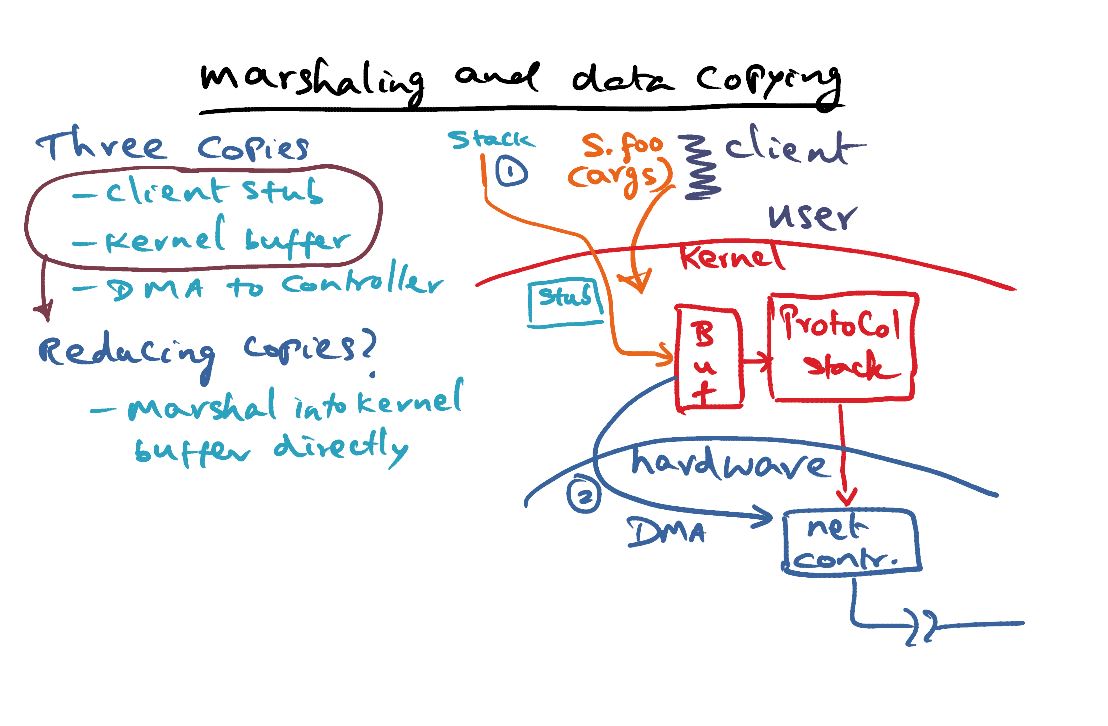 marshaling and data copying
Three copies
- Client stub
- Kernel buffer
- DMA to controller
Reducing copies?
- Marshal into kernel
buffer directly
Stack
1
S.foo
(args)
client
user
Kernel
Stub
Buf
Protocol
stack
hardware
2
DMA
net
contr.